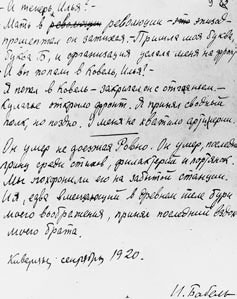 - И теперь, Илья?-
Мать в ~~революции~~ революции - ~~это~~ эпизод -
прошептал он затихая. - Пришла моя буква,
буква Б, и организация услала меня на фронт...
- И вы попали в Ковель, Илья? -
Я попал в Ковель - закричал он с отчаянием. -
Кулачье открыло фронт. Я принял сводный
полк, но поздно. У меня не хватило артиллерии.
Он умер не доезжая Ровно. Он умер, последний
принц среди стихов, филактерий и портянок.
Мы похоронили его на забытой станции.
И я, едва вмещающий в древнем теле бури
моего воображения, принял последний вздох
моего брата.
сентябрь 1920.
И. Бабель